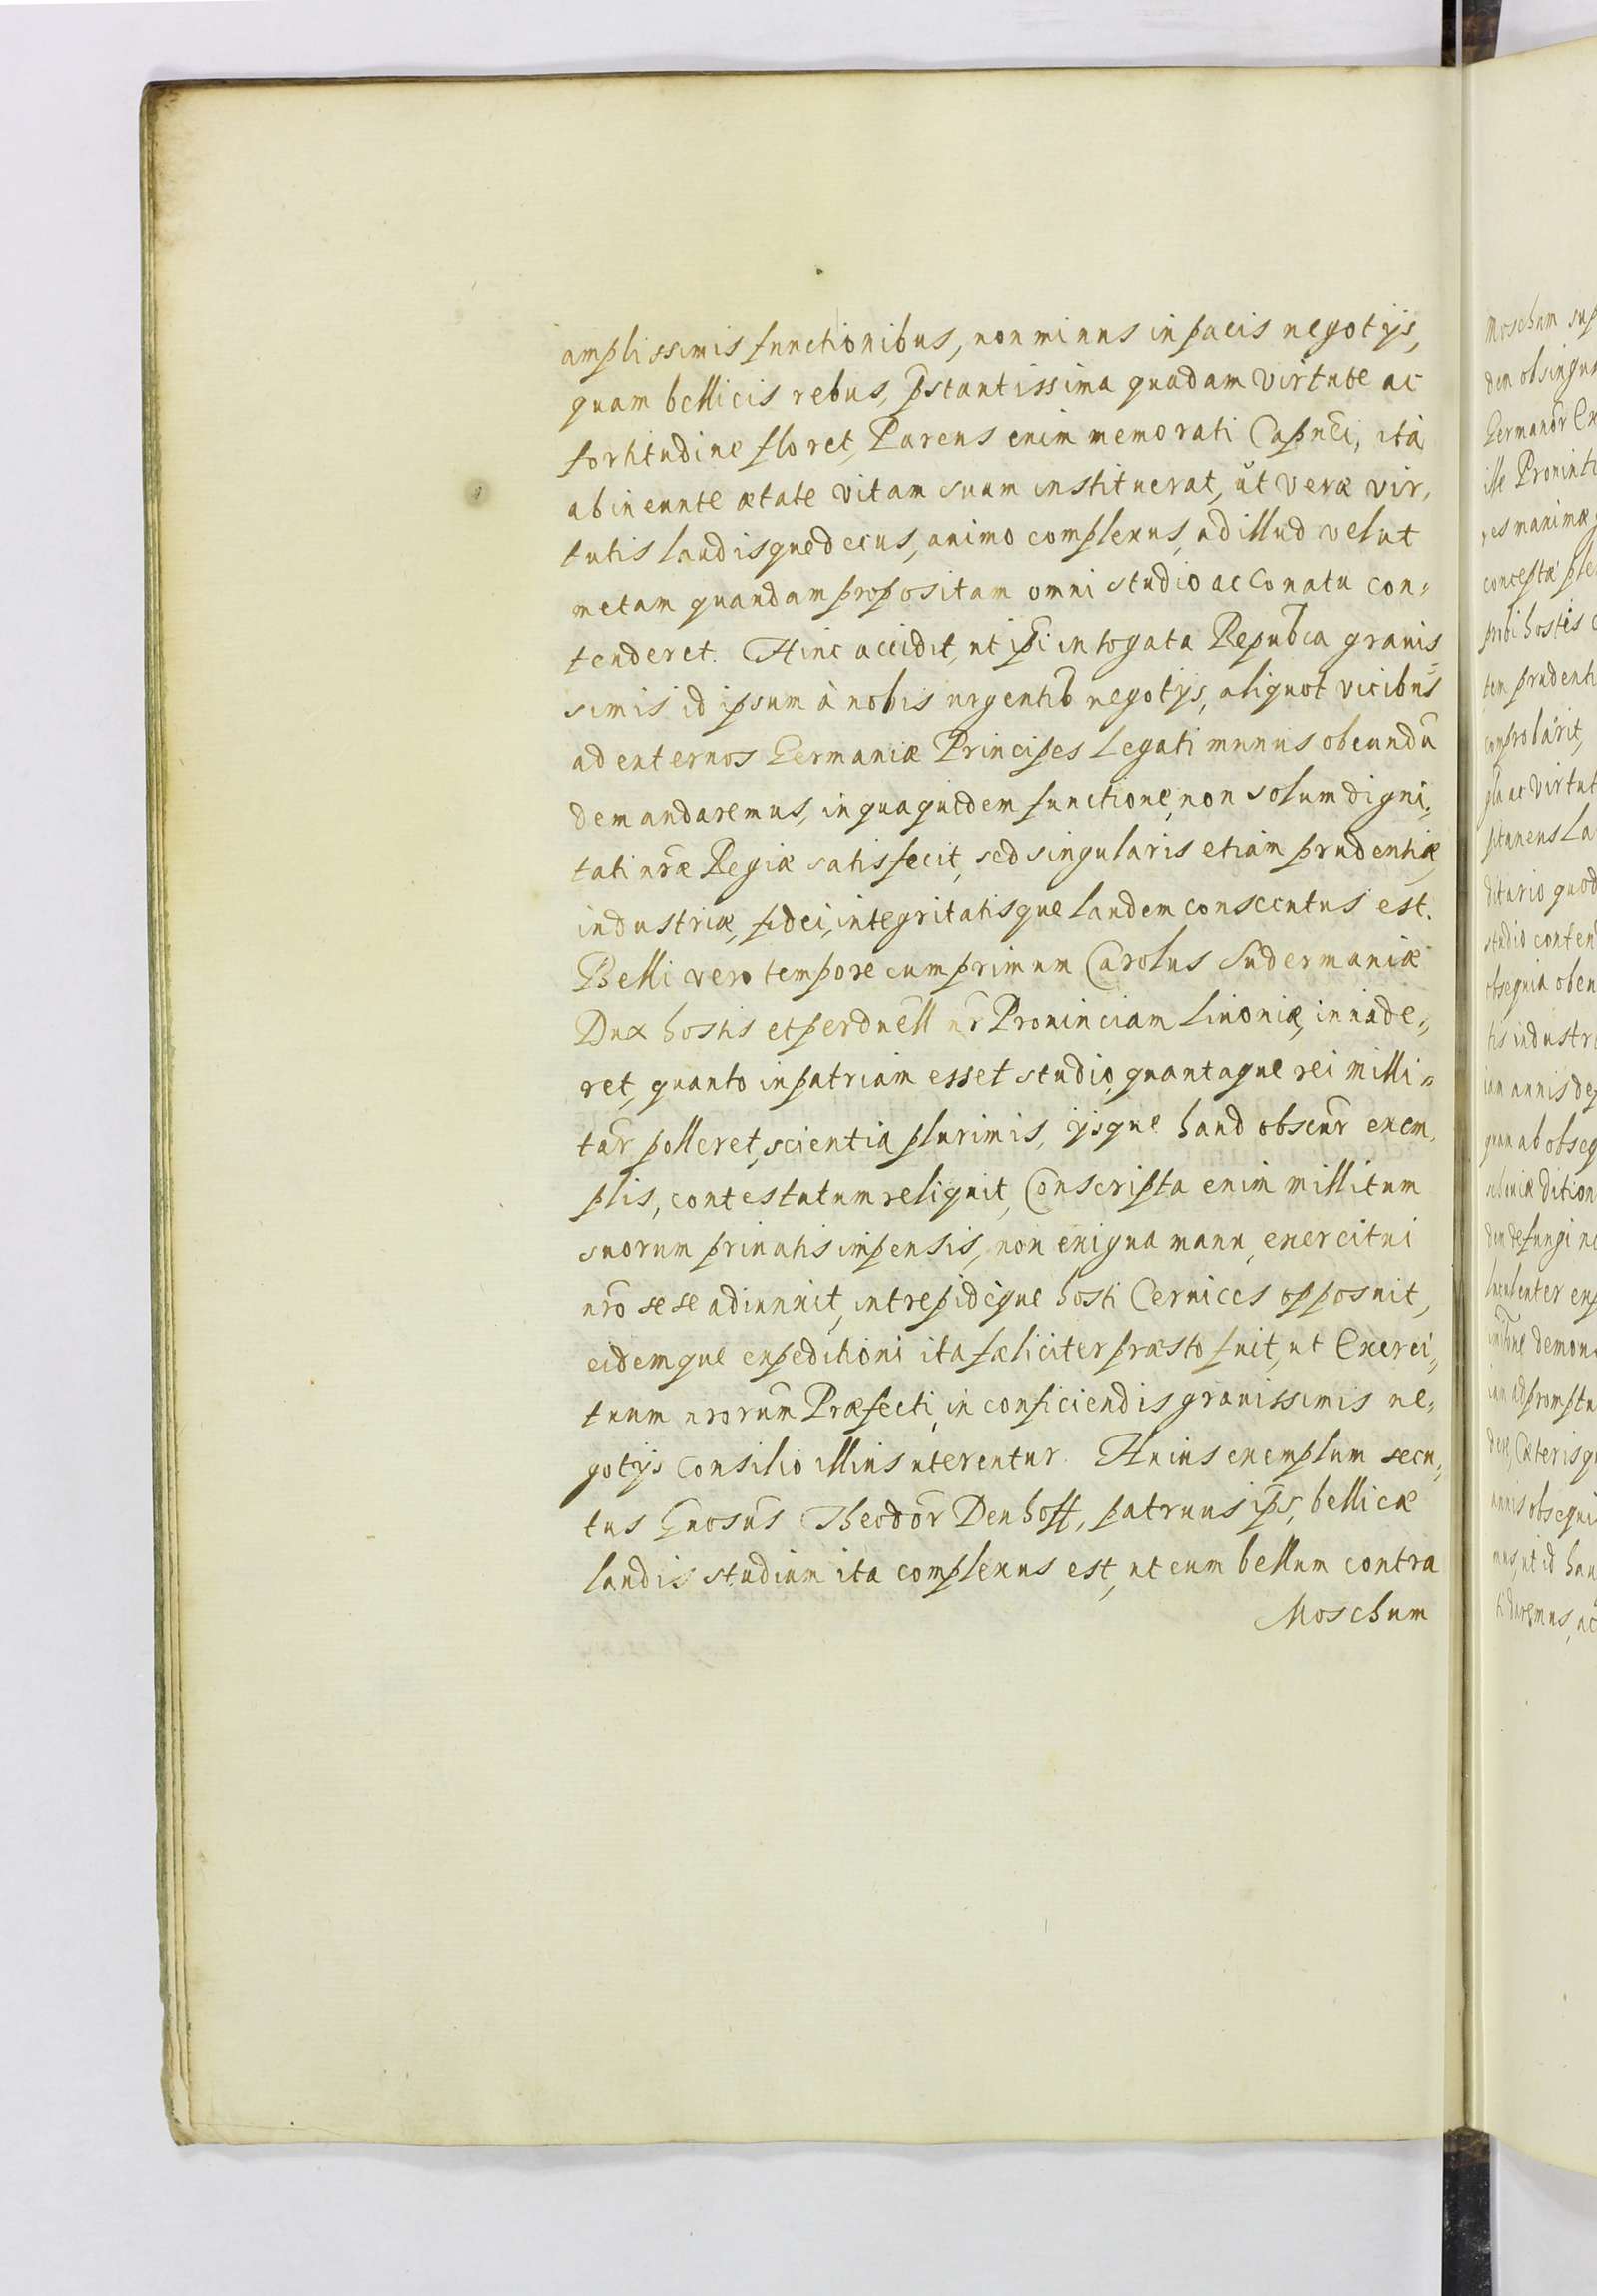 amplissimis functionibus, non minus in pacis negotijs,
quam bellicis rebus, p̃stantissima quadam virtute ac
fortitudine floret, Parens enim memorati Capnẽi, ità
ab ineunte ætate vitam suam instituerat, ut veræ vir,
tutis laudisque decus, animo complexus, ad illud velut
metam quandam propositam omni studio ac Conatu con„
tenderet. Hinc accidit, ut ip̃i in togata Repub̃ca grauis„
simis id ipsum à nobis urgentib̃ negotijs, aliquot vicibus
ad externos Germaniæ Principes Legati munus obeundũ
demandaremus, in qua quidem functione, non solum digni„
tati nr̃æ Regiæ satisfecit, sed singularis etiam prudentiæ,
industriæ, fidei, integritatisque laudem consecutus est.
Belli vero tempore cum primum Carolus Sudermaniæ
Dux hostis et perduell̃ nr̃ Prouinciam Liuoniæ, inuade„
ret, quanto in patriam esset studio, quantaque rei milli„
tar̃ polleret, scientia plurimis, ijsque haud obscur̃ exem,
plis, contestatum reliquit, Conscripta enim millitum
suorum priuatis impensis, non exigua manu, exercitui
nr̃o sese adiunxit, intrepidèque hosti Ceruices opposuit,
eidemque expeditioni ita fæliciter præsto fuit, ut Exerci„
tuum nrorũm Præfecti, in conficiendis grauissimis ne„
gotijs Consilio illius uterentur. Huius exemplum secu„
tus Gnosũs Theodor̃ Denhoff, patruus ip̃s, bellicæ
laudis studium ita complexus est, ut cum bellum contra
Moschum
Moschum sup
Prouinti
concepta
hostis
tem prudenti
comprobârit,
ac virtut
ditario quod
studio conten
obsequia obeu
tis industri
iam annis de
quam ab obseq
dition
defungi
luculenter exp
demon
ad promptu
dere, Cæterisq
annis obsequi
mus, ut id hau